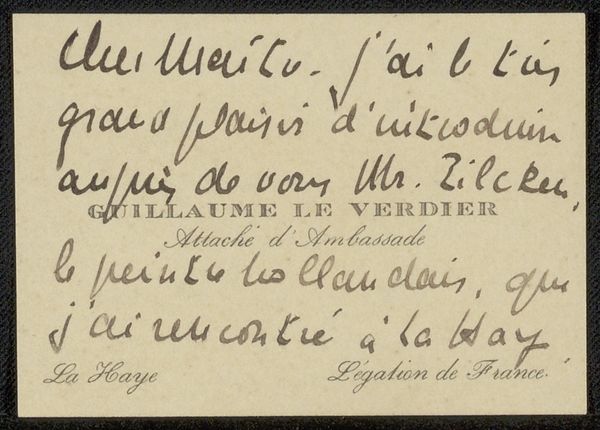 Cher Maître. j'ai le très
grand plaisir d'introduire
auprès de vous Mr. Zilcken,
GUILLAUME LE VERDIER
Attaché d'Ambassade
le peintre hollandais, que
j'ai rencontré à La Haye
La Haye
Légation de France.